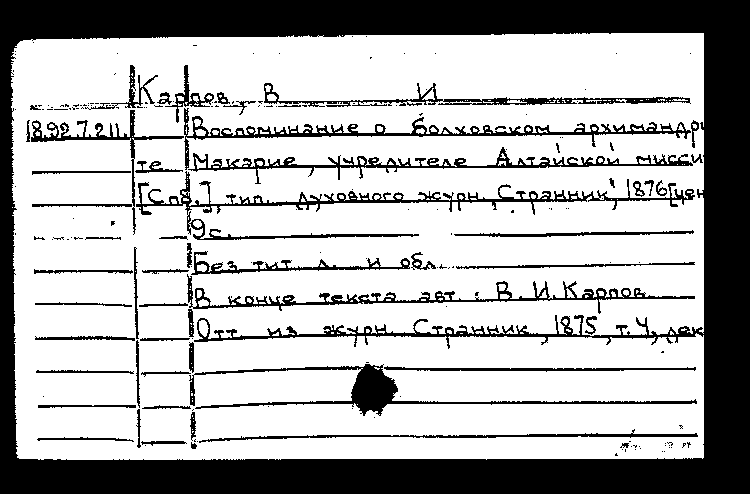 Карпов, В И
18.92.7.211. Воспоминание о болховском архимандри
те Макарие, учредителе Алтайской мисси
[Спб.], тип. духовного журн. "Странник", 1876 [цен
9с.
Без тит л. и обл.
В конце текста авт.: В.И.Карпов
Отт из журн. Странник, 1875, т.4, дек